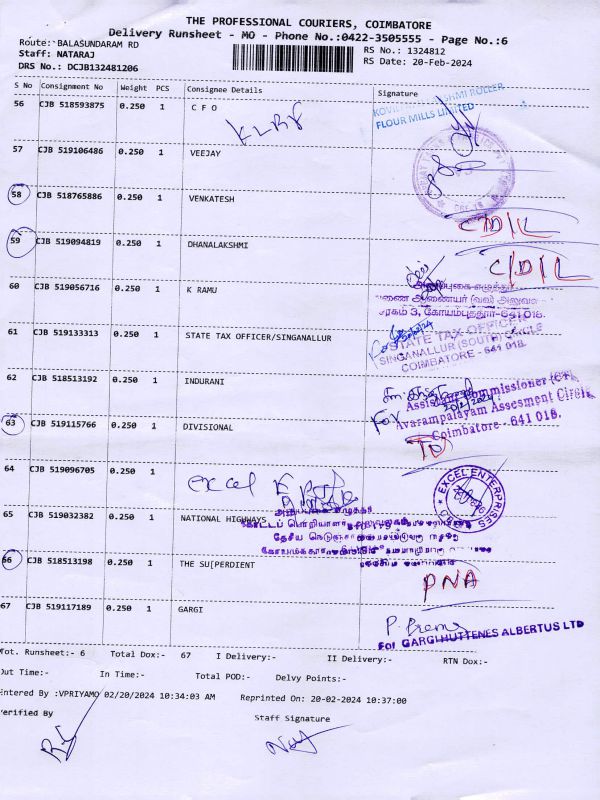 THE PROFESSIONAL COURIERS, COIMBATORE
Delivery Runsheet - MO - Phone No.:0422-3505555 - Page No.:6
Route: BALASUNDARAM RD
RS No.: 1324812
Staff: NATARAJ
RS Date: 20-Feb-2024
DRS No.: DCJB132481206
S No Consignment No Weight PCS Consignee Details Signature
56 CJB 518593875 0.250 1 C F O
ROLLER
FLOUR MILLS LIMITED
KLRF
57 CJB 519106486 0.250 1 VEEJAY
58 CJB 518765886 0.250 1 VENKATESH
C/DIL
59 CJB 519094819 0.250 1 DHANALAKSHMI
C/DIL
60 CJB 519056716 0.250 1 K RAMU
ஆணையர் (வவ) அலுவல
சரகம் 3, கோயம்புத்தூர்-641 018.
61 CJB 519133313 0.250 1 STATE TAX OFFICER/SINGANALLUR
STATE TAX OFFICER
SINGANALLUR (SOUTH) CIRCLE
COIMBATORE - 641 018.
62 CJB 518513192 0.250 1 INDURANI
Assistant Commissioner (CT),
Avarampalayam Assesment Circle
Coimbatore - 641 018.
For
63 CJB 519115766 0.250 1 DIVISIONAL
TD
64 CJB 519096705 0.250 1
excel
EXCEL ENTERPRISES
65 CJB 519032382 0.250 1 NATIONAL HIGHWAYS
66 CJB 518513198 0.250 1 THE SU[PERDIENT
PNA
67 CJB 519117189 0.250 1 GARGI
P. Prema
For GARGI HUTTENES ALBERTUS LTD
Tot. Runsheet:- 6 Total Dox:- 67 I Delivery:- II Delivery:- RTN Dox:-
Out Time:- In Time:- Total POD:- Delvy Points:-
Entered By :VPRIYAMO 02/20/2024 10:34:03 AM Reprinted On: 20-02-2024 10:37:00
Verified By Staff Signature